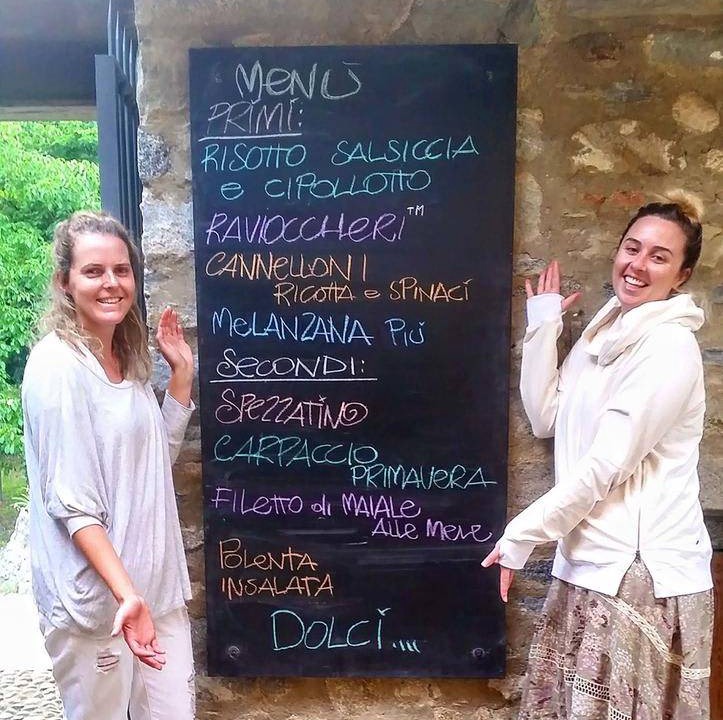 MENÙ
PRIMI:
RISOTTO SALSICCIA
e CIPOLLOTTO
RAVIOCCHERI™
CANNELLONI
RICOTTA e SPINACI
MELANZANA PIÙ
SECONDI:
SPEZZATINO
CARPACCIO
PRIMAVERA
FILETTO di MAIALE
ALLE MELE
POLENTA
INSALATA
DOLCI....